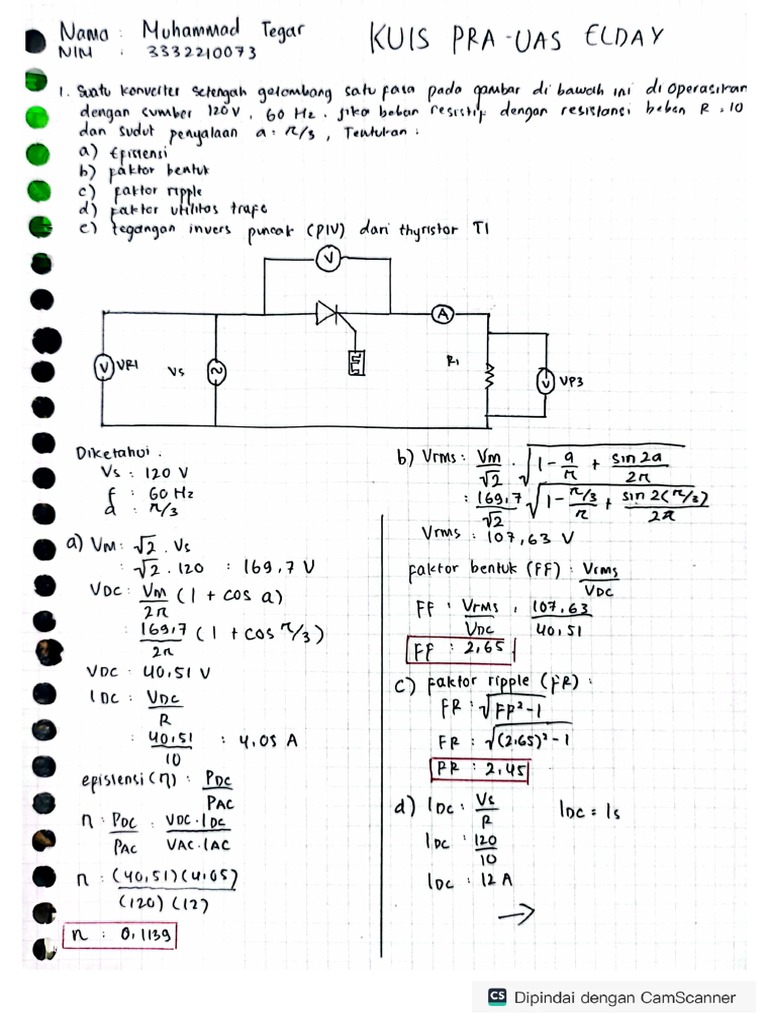 Nama : Muhammad Tegar
NIM : 3332210073
KUIS PRA-UAS ELDAY
1. Suatu konverter setengah gelombang satu fasa pada gambar di bawah ini di operasikan
dengan sumber 120 V, 60 Hz. jika beban resistif dengan resistansi beban R = 10
dan sudut penyalaan a = π/3, Tentukan :
a) Efisiensi
b) faktor bentuk
c) faktor ripple
d) faktor utilitas trafo
e) tegangan invers puncak (PIV) dari thyristor T1
V
A
V VR1
Vs
R1
V VP3
Diketahui :
Vs : 120 V
f : 60 Hz
a : π/3
a) VM : √2 . Vs
: √2 . 120 : 169,7 V
VDC : Vm/2π (1 + cos a)
: 169,7/2π (1 + cos π/3)
VDC : 40,51 V
IDC : VDC/R
: 40,51/10 : 4,05 A
efisiensi (η) : PDC/PAC
η : PDC/PAC : VDC.IDC/VAC.IAC
η : (40,51)(4,05)/(120)(12)
η : 0,1139
b) Vrms : Vm/√2 . √1 - a/π + sin 2a/2π
: 169,7/√2 √1 - π/3/π + sin 2(π/3)/2π
Vrms : 107,63 V
faktor bentuk (FF) : Vrms/VDC
FF : Vrms/VDC : 107,63/40,51
FF : 2,65
c) faktor ripple (FR) :
FR : √FF² - 1
FR : √(2,65)² - 1
FR : 2,45
d) IDC : Vs/R IDC = Is
IDC : 120/10
IDC : 12 A
→
CS Dipindai dengan CamScanner